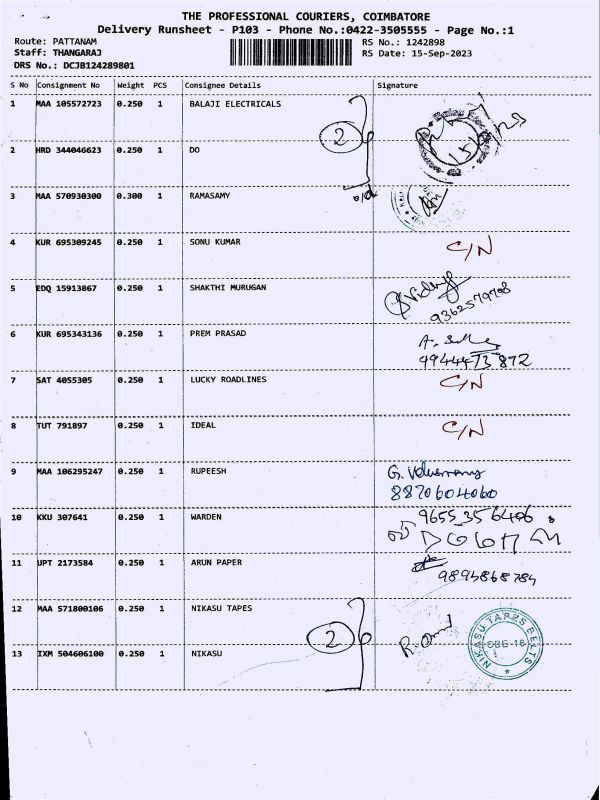 THE PROFESSIONAL COURIERS, COIMBATORE
Delivery Runsheet - P103 - Phone No.:0422-3505555 - Page No.:1
Route: PATTANAM RS No.: 1242898
Staff: THANGARAJ RS Date: 15-Sep-2023
DRS No.: DCJB124289801
S No Consignment No Weight PCS Consignee Details Signature
1 MAA 105572723 0.250 1 BALAJI ELECTRICALS
2
2 HRD 344046623 0.250 1 DO
3 MAA 570930300 0.300 1 RAMASAMY
4 KUR 695309245 0.250 1 SONU KUMAR C/N
5 EDQ 15913867 0.250 1 SHAKTHI MURUGAN
9362579708
6 KUR 695343136 0.250 1 PREM PRASAD
9944473872
7 SAT 4055305 0.250 1 LUCKY ROADLINES C/N
8 TUT 791897 0.250 1 IDEAL C/N
9 MAA 106295247 0.250 1 RUPEESH
8870604060
10 KKU 307641 0.250 1 WARDEN 9655356406
11 UPT 2173584 0.250 1 ARUN PAPER
9894868784
12 MAA 571800106 0.250 1 NIKASU TAPES
2 NIKASU TAPES BELTS
13 IXM 504606100 0.250 1 NIKASU